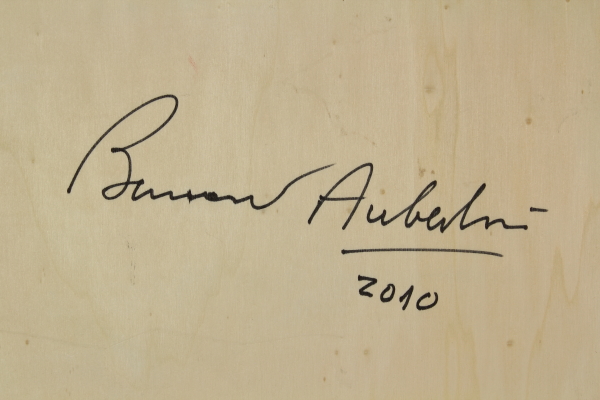 Bernard Aubertin
2010